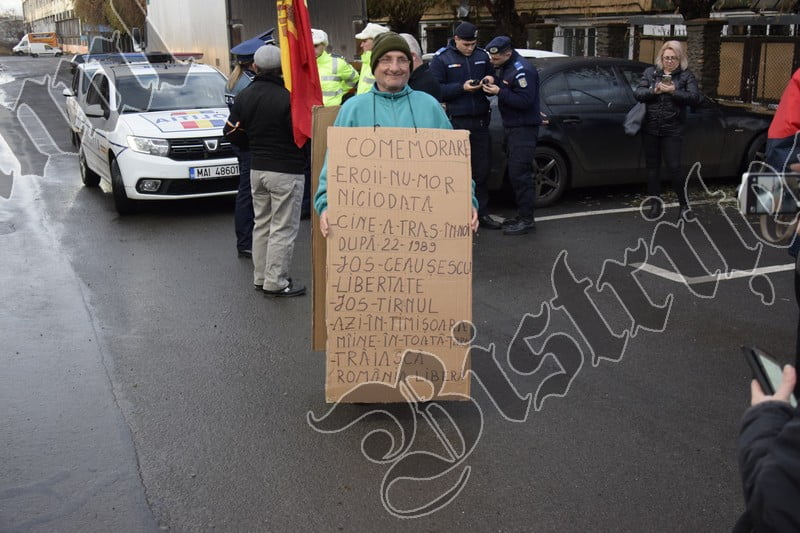 COMEMORARE
-EROII-NU-MOR
NICIODATĂ
-CINE-A-TRAS-ÎN-NOI
DUPĂ-22-1989
-JOS-CEAUȘESCU
-LIBERTATE
-JOS-TIRNUL
-AZI-ÎN-TIMIȘOARA
MÎINE-ÎN-TOATĂ-ȚARA
-TRĂIASCĂ
ROMÂNIA LIBERĂ
MAI 48601
Bistrițe